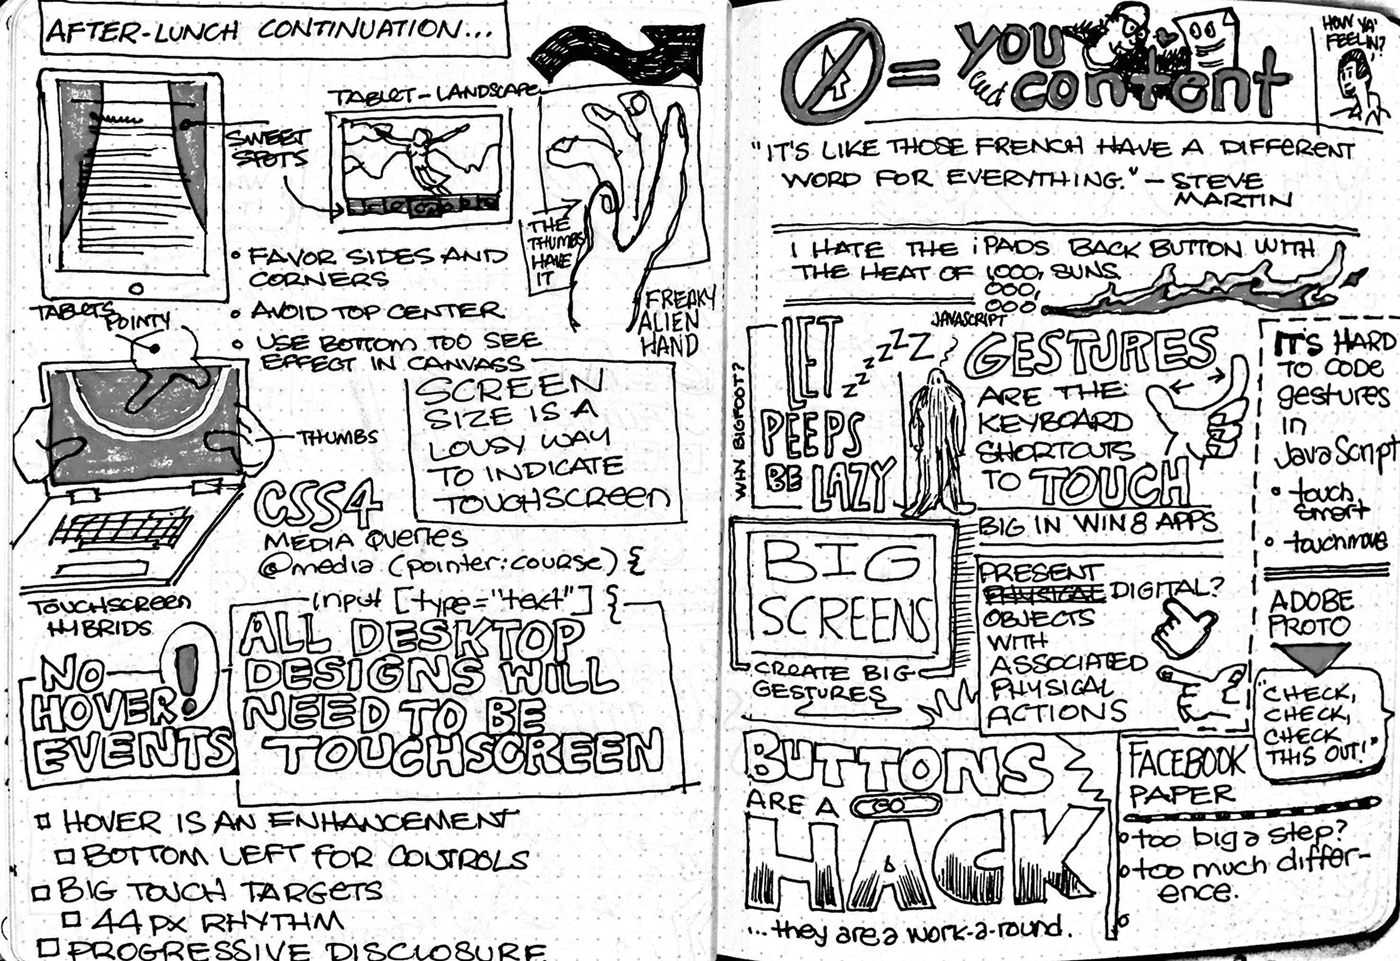 AFTER-LUNCH CONTINUATION...
TABLET-LANDSCAPE
SWEET
SPOTS
TABLETS
THE
THUMBS
HAVE
IT
FREAKY
ALIEN
HAND
• FAVOR SIDES AND
CORNERS
• AVOID TOP CENTER
• USE BOTTOM TOO SEE
EFFECT IN CANVASS
POINTY
THUMBS
TOUCHSCREEN
HYBRIDS
SCREEN
SIZE IS A
LOUSY WAY
TO INDICATE
TOUCHSCREEN
CSS4
MEDIA QUERIES
@media (pointer:course) {
input [type="text"] {
NO
HOVER
EVENTS
!
ALL DESKTOP
DESIGNS WILL
NEED TO BE
TOUCHSCREEN
HOVER IS AN ENHANCEMENT
BOTTOM LEFT FOR CONTROLS
BIG TOUCH TARGETS
44 PX RHYTHM
PROGRESSIVE DISCLOSURE
= you
and content
HOW YA'
FEELIN?
"IT'S LIKE THOSE FRENCH HAVE A DIFFERENT
WORD FOR EVERYTHING." - STEVE
MARTIN
I HATE THE iPADS BACK BUTTON WITH
THE HEAT OF 1,000, SUNS.
000,
000
WHY BIGFOOT?
LET
PEEPS
BE LAZY
zzzzzZ
JAVASCRIPT
GESTURES
ARE THE
KEYBOARD
SHORTCUTS
TO TOUCH
BIG IN WIN 8 APPS
IT'S HARD
TO CODE
gestures
in
JavaScript
• touch
smart
• touchmove
BIG
SCREENS
CREATE BIG
GESTURES
PRESENT
PHYSICAL DIGITAL?
OBJECTS
WITH
ASSOCIATED
PHYSICAL
ACTIONS
ADOBE
PROTO
"CHECK,
CHECK,
CHECK
THIS OUT!"
BUTTONS
ARE A GO
HACK
...they are a work-a-round.
FACEBOOK
PAPER
too big a step?
too much differ-
ence.